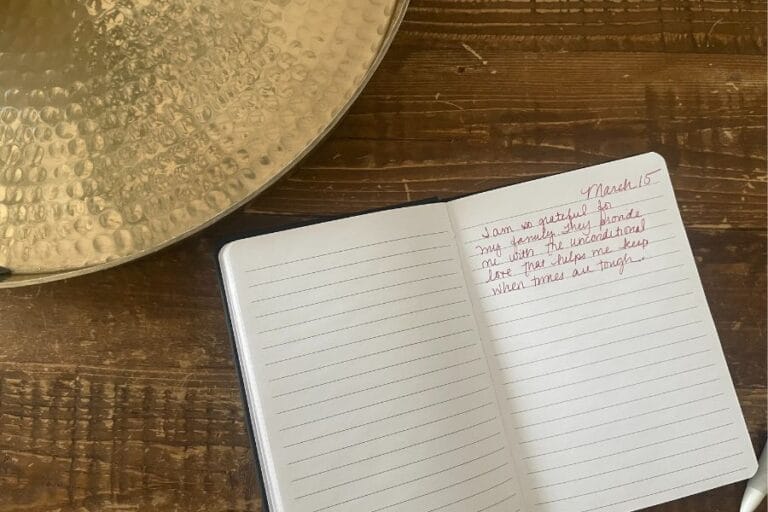 March 15
I am so grateful for
my family. They provide
me with the unconditional
love that helps me keep
when times are tough.